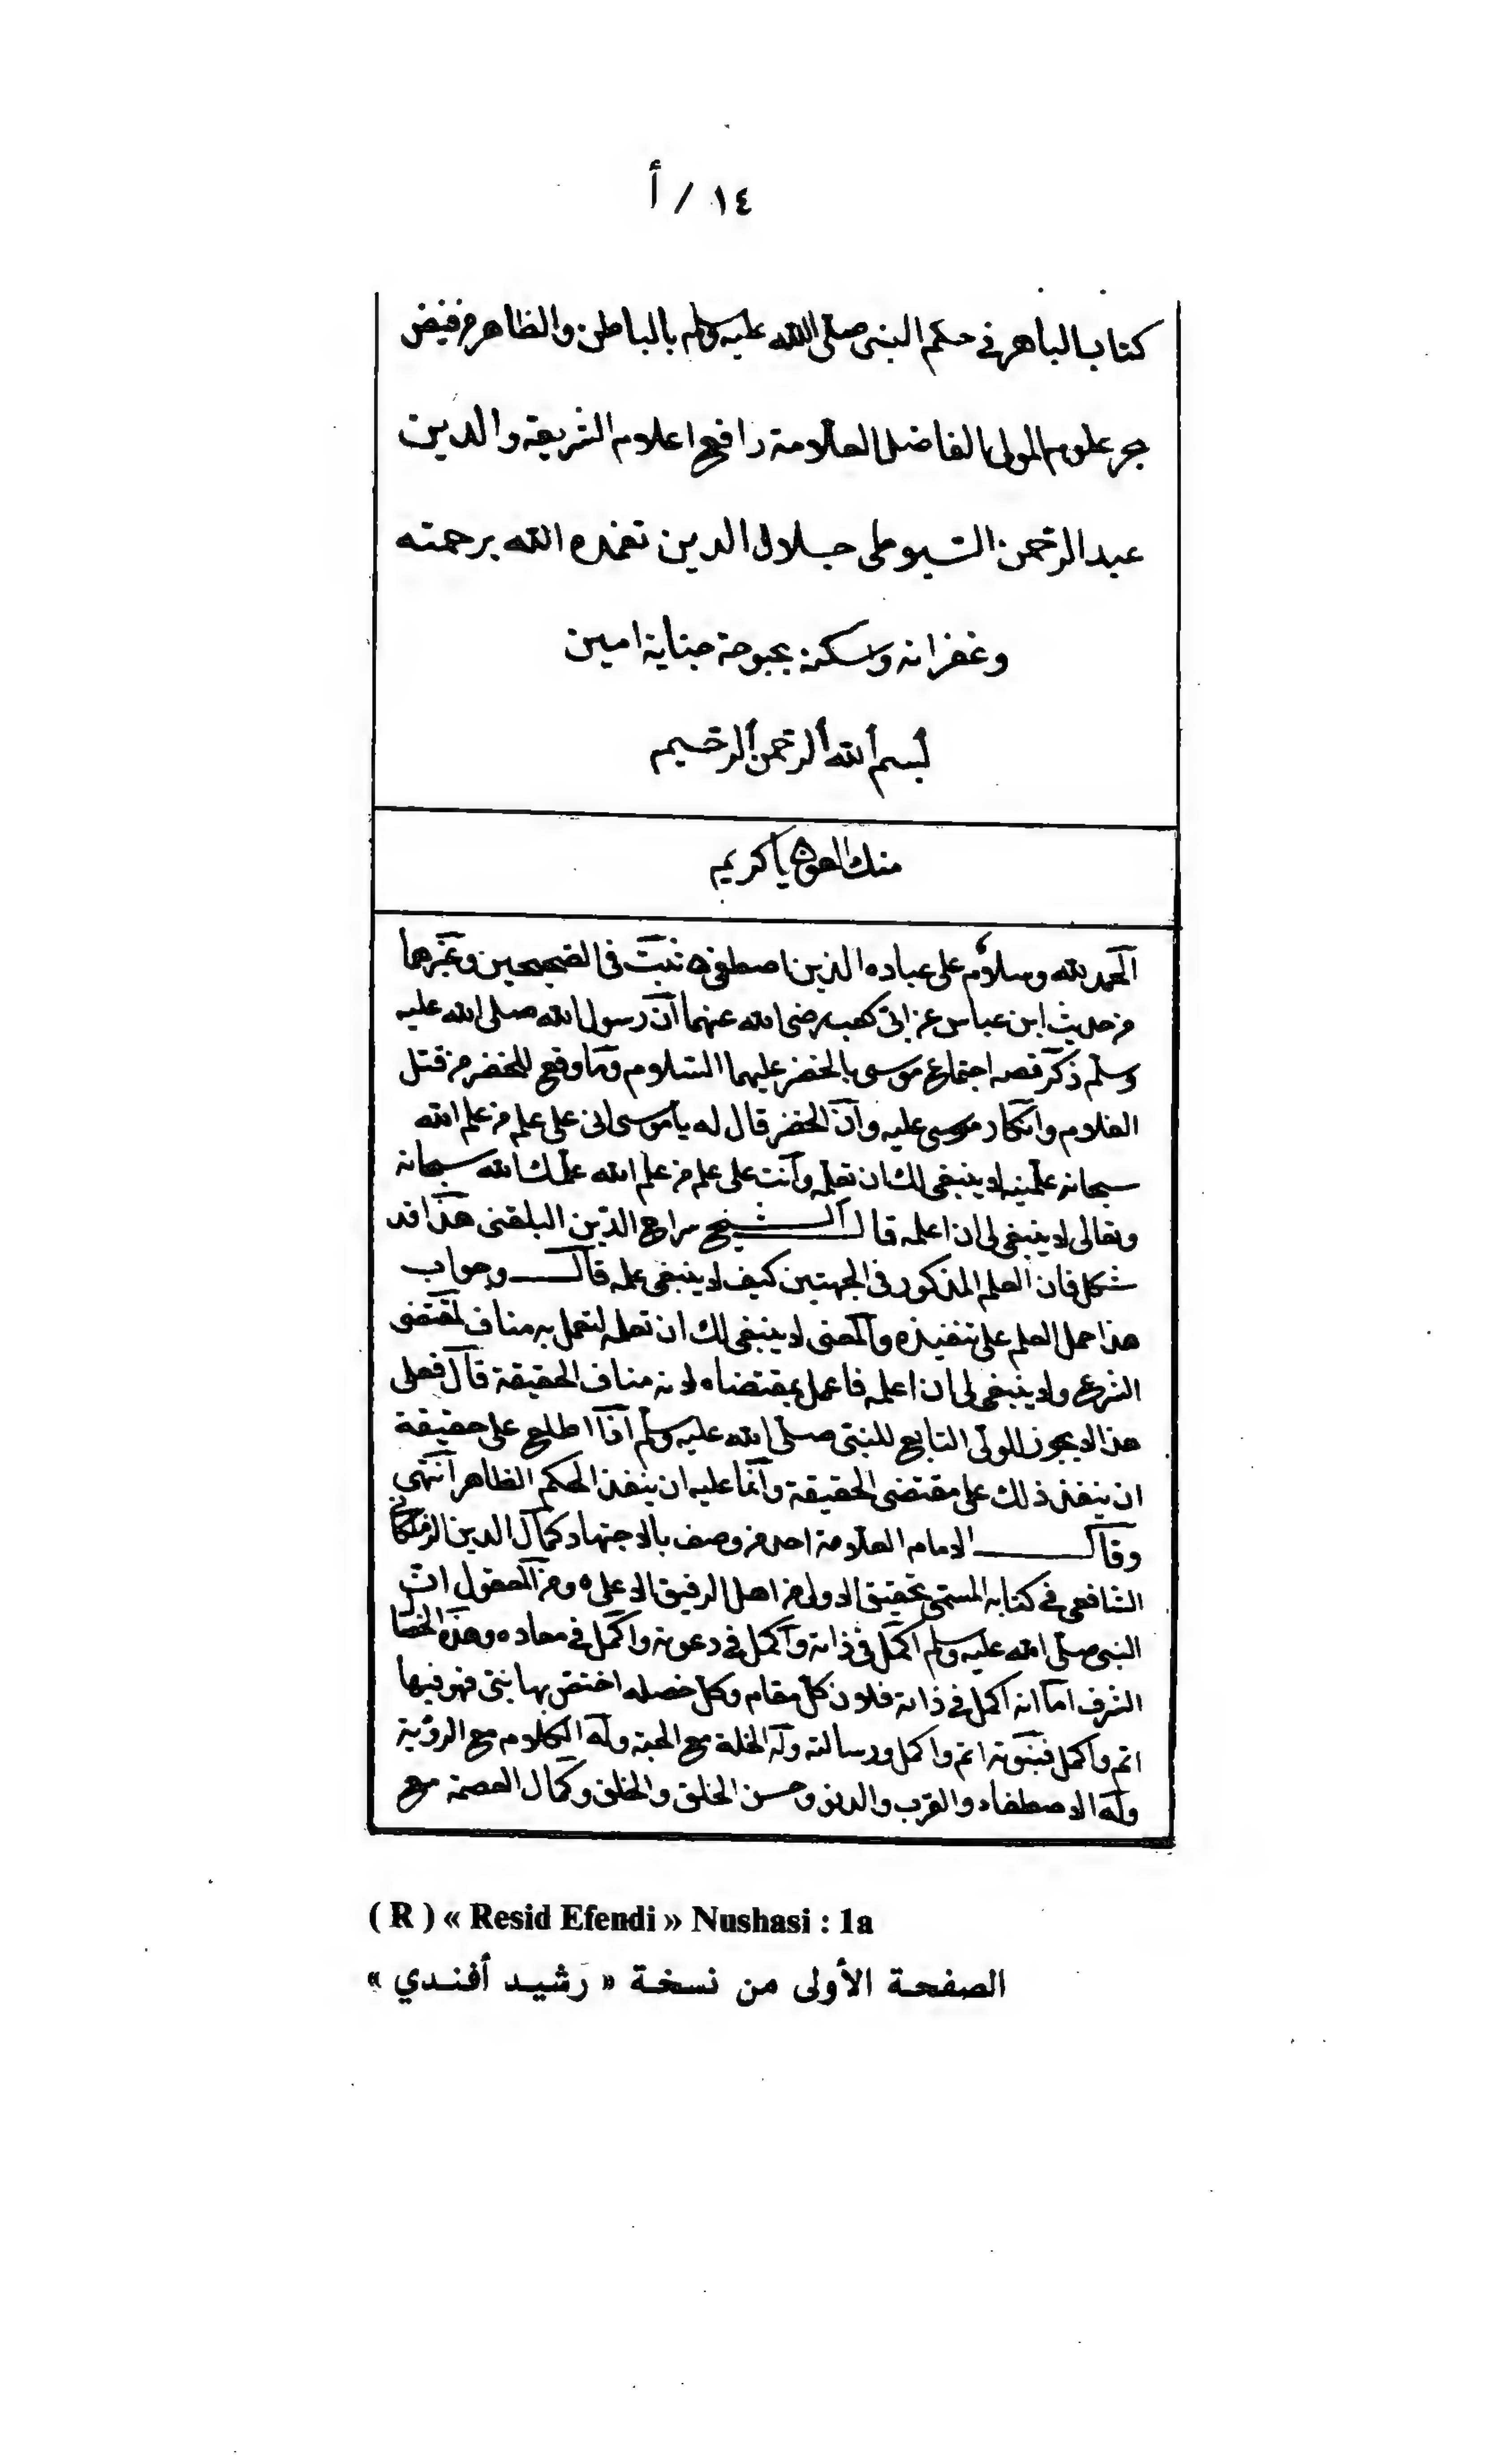 ١٤ / أ
كتاب الباهر في حكم النبي صلى الله عليه وسلم بالباطن والظاهر من فيض
بحر علوم المولى الفاضل العلامة رافع اعلام الشريعة والدين
عبد الرحمن السيوطي جلال الدين تغمده الله برحمته
وغفرانه واسكنه بحبوحة جنانه امين
بسم الله الرحمن الرحيم
منك العون يا كريم
الحمد لله وسلام على عباده الذين اصطفى ثبت في الصحيحين وغيرهما
من حديث ابن عباس عن ابي كعب رضى الله عنهما ان رسول الله صلى الله عليه
وسلم ذكر قصه اجتماع موسى بالخضر عليهما السلام وما وقع للخضر من قتل
الغلام وانكار موسى عليه وان الخضر قال له يا موسى انى على علم من علم الله
سبحانه علمنيه لا ينبغى لك ان تعلمه وانت على علم من علم الله علمك الله سبحانه
وتعالى لا ينبغى لى ان اعلمه قال الشيخ سراج الدين البلقنى هذا قد
شكل فان العلم المذكور فى الجهتين كيف لا ينبغى علمه قال وجواب
هذا حمل العلم على تنفيذه والمعنى لا ينبغى لك ان تعلمه لتعمل به مناف لمقتضى
الشرع ولا ينبغى لى ان اعلمه فاعمل بمقتضاه لانه مناف الحقيقة قال فعلى
هذا لا يجوز للولى التابع للنبى صلى الله عليه وسلم اذا اطلع على حقيقة
ان ينفذ ذلك على مقتضى الحقيقة وانما عليه ان ينفذ الحكم الظاهر انتهى
وقال الامام العلامة احد من وصف بالاجتهاد كمال الدين الزملكانى
الشافعى فى كتابه المسمى تحقيق الاولى من اهل الرفيق الاعلى ومن المعقول ان
النبى صلى الله عليه وسلم اكمل فى ذاته واكمل فى دعوته واكمل فى معاده وهذه الخصا
الشرف اما انه اكمل فى ذاته فلان كل مقام وكل خصله اختص بها نبى فهو فيها
اتم واكمل فنبوته اتم واكمل ورسالته وله الخلة مع المحبة وله الكلام مع الرؤية
وله الاصطفاء والقرب والدنو وحسن الخلق والخلق وكمال العصمة مع
( R ) « Resid Efendi » Nushasi : 1a
الصفحة الأولى من نسخة « رشيد أفندي »